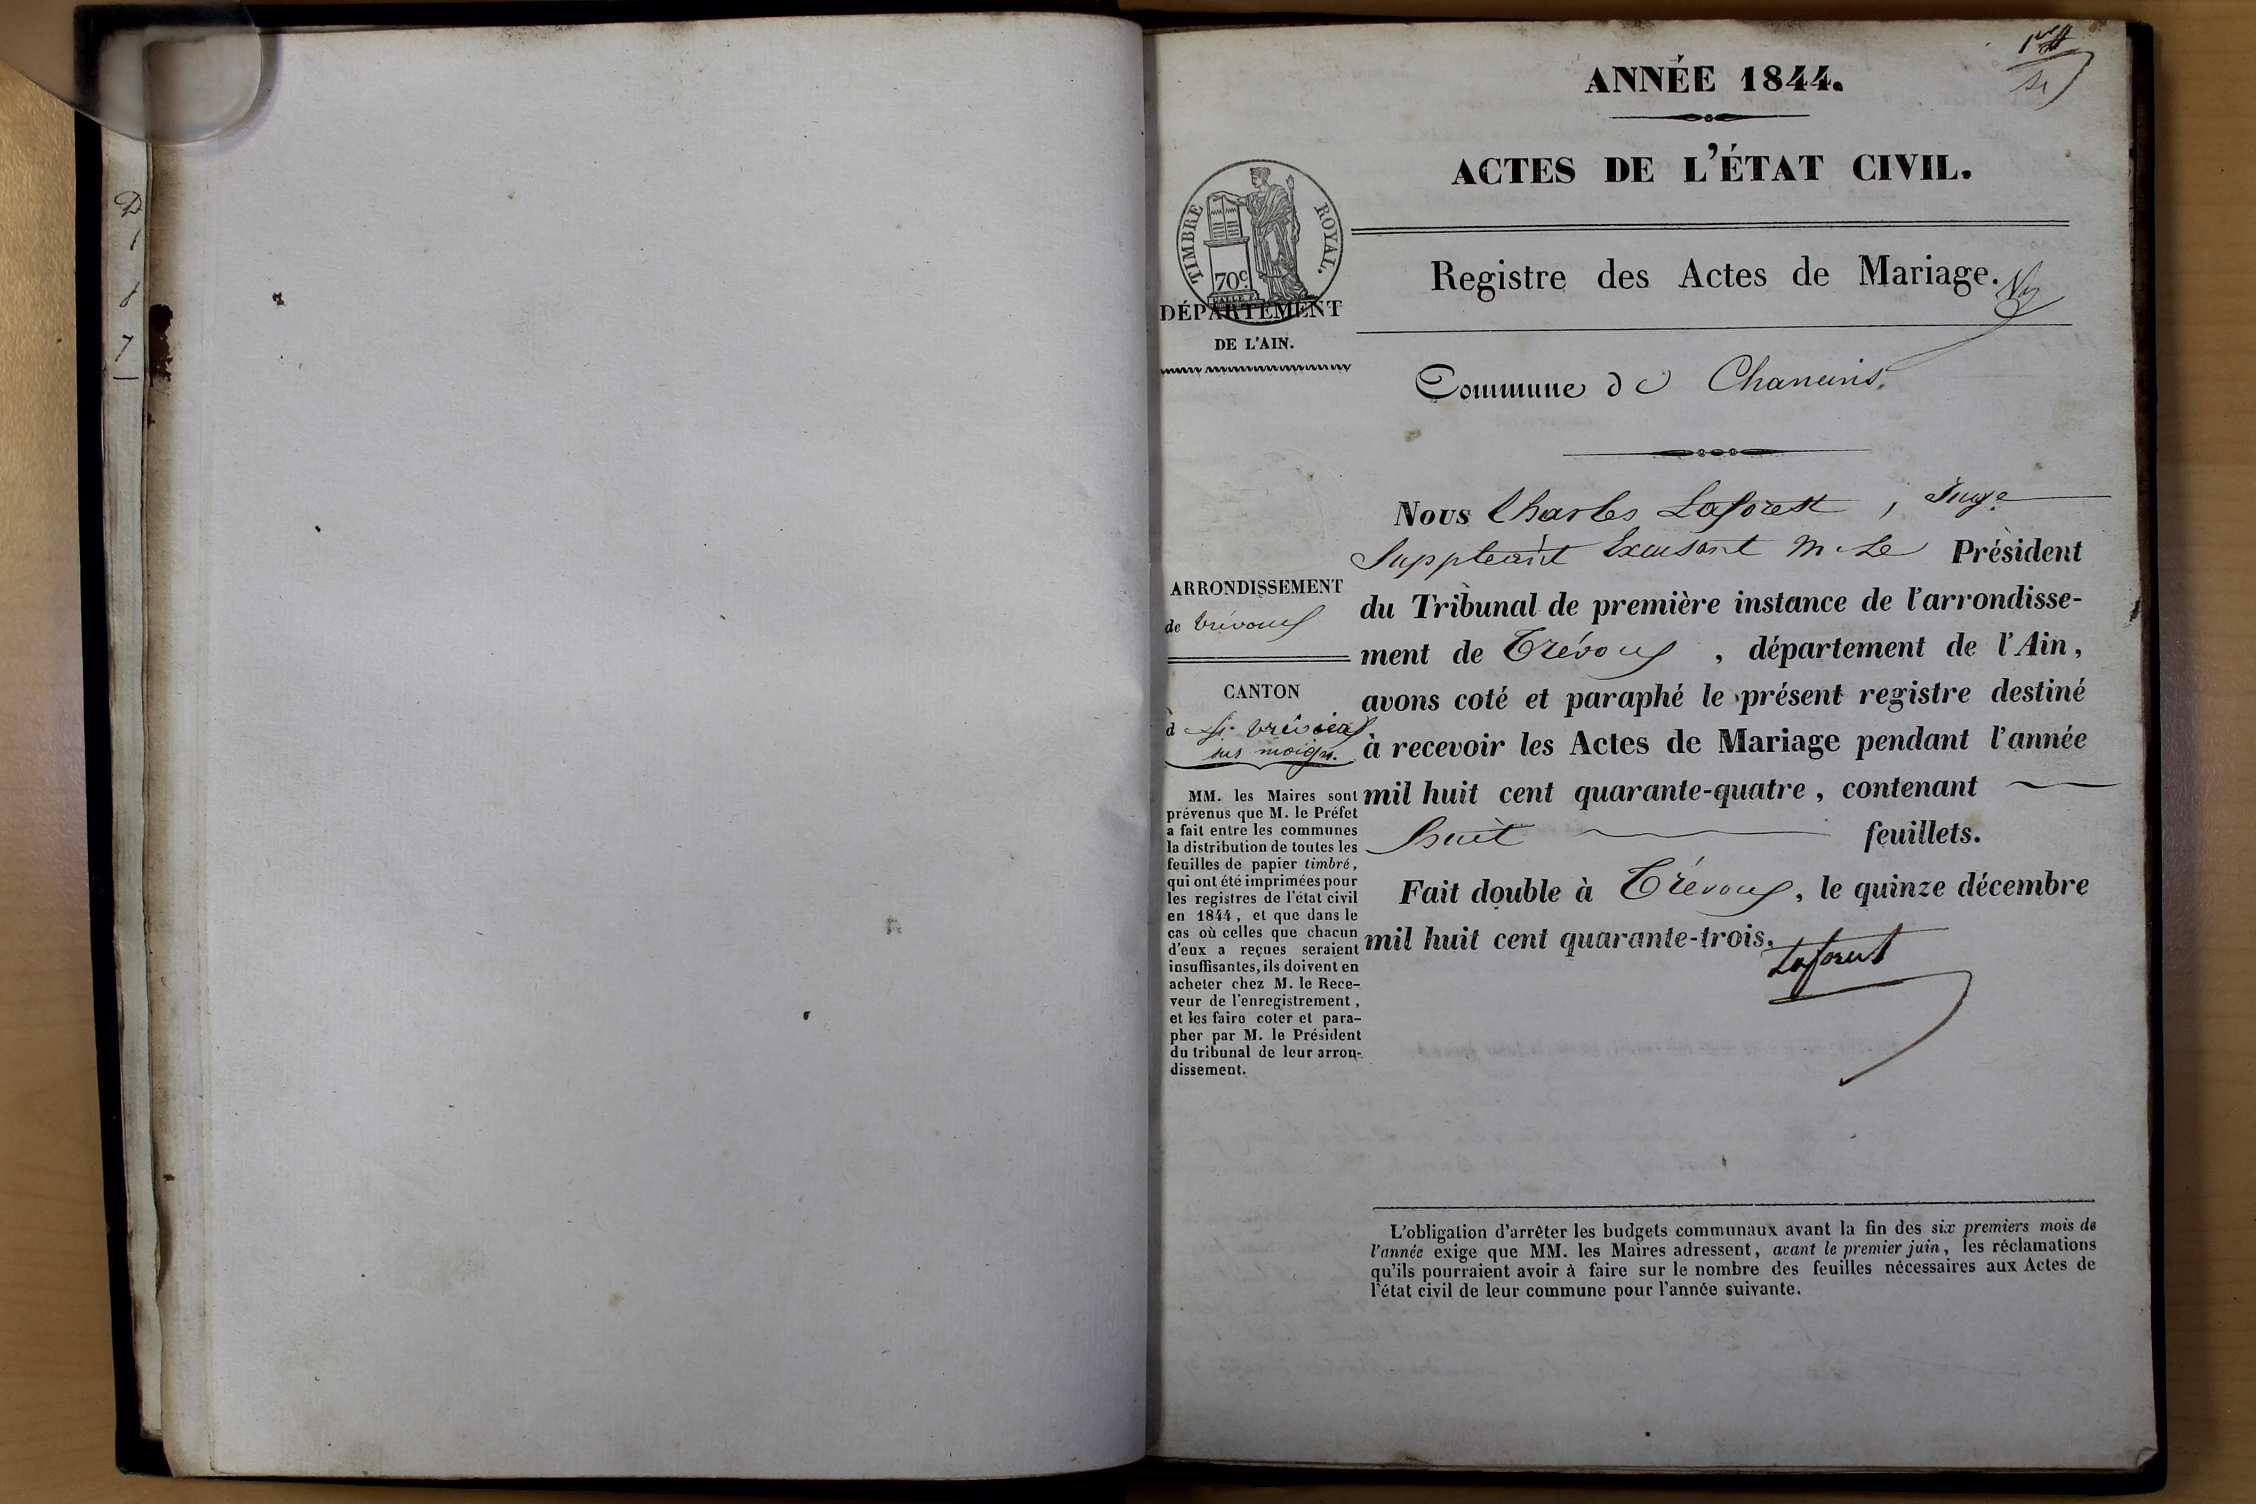 ANNÉE 1844.
ACTES DE L'ÉTAT CIVIL.
TIMBRE ROYAL.
70c
Registre des Actes de Mariage.
DÉPARTEMENT
DE L'AIN.
Commune de Chaneins.
Nous Charles Laforest, Juge
Suppléant Excusant M. Le Président
du Tribunal de première instance de l'arrondisse-
ment de Trévoux, département de l'Ain,
avons coté et paraphé le présent registre destiné
à recevoir les Actes de Mariage pendant l'année
mil huit cent quarante-quatre, contenant
huit feuillets.
Fait double à Trévoux, le quinze décembre
mil huit cent quarante-trois.
Laforest
ARRONDISSEMENT
de trévoux
CANTON
d St. trivier
sur moign.
MM. les Maires sont
prévenus que M. le Préfet
a fait entre les communes
la distribution de toutes les
feuilles de papier timbré,
qui ont été imprimées pour
les registres de l'état civil
en 1844, et que dans le
cas où celles que chacun
d'eux a reçues seraient
insuffisantes, ils doivent en
acheter chez M. le Rece-
veur de l'enregistrement,
et les faire coter et para-
pher par M. le Président
du tribunal de leur arron-
dissement.
L'obligation d'arrêter les budgets communaux avant la fin des six premiers mois de
l'année exige que MM. les Maires adressent, avant le premier juin, les réclamations
qu'ils pourraient avoir à faire sur le nombre des feuilles nécessaires aux Actes de
l'état civil de leur commune pour l'année suivante.